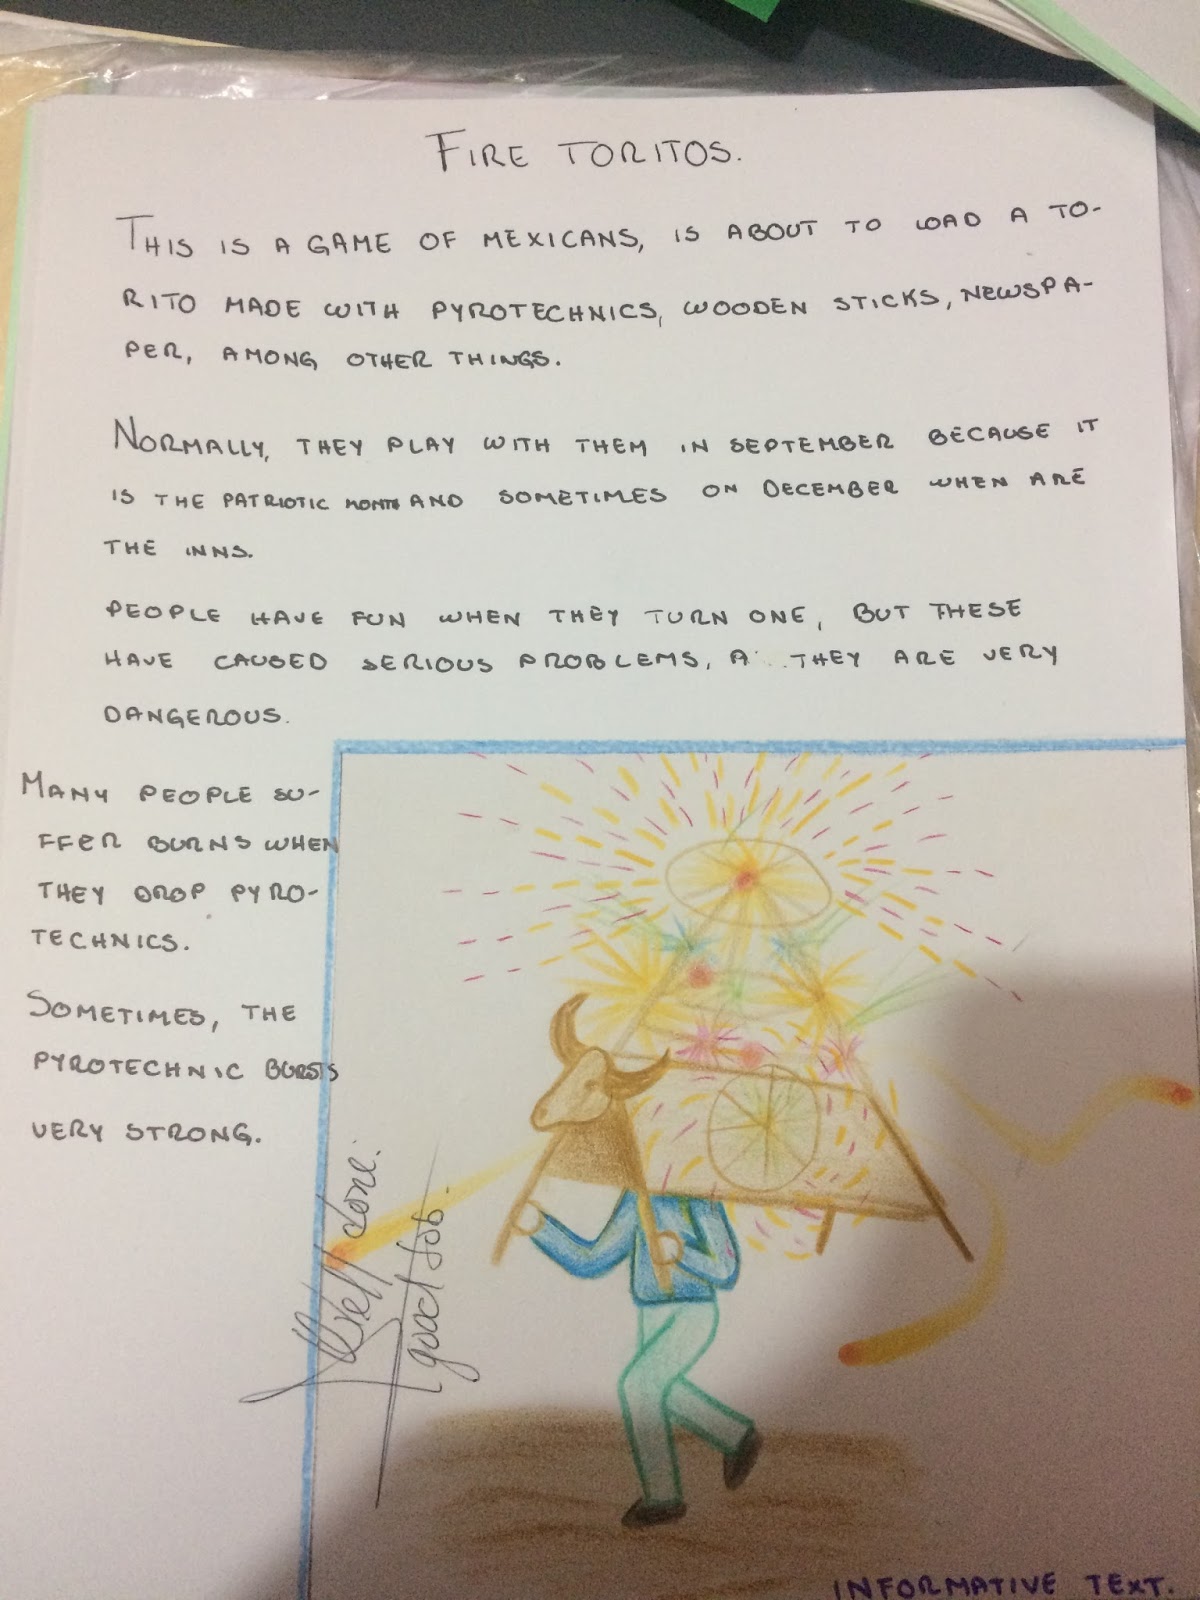 FIRE TORITOS.
THIS IS A GAME OF MEXICANS, IS ABOUT TO LOAD A TO-
RITO MADE WITH PYROTECHNICS, WOODEN STICKS, NEWSPA-
PER, AMONG OTHER THINGS.
NORMALLY, THEY PLAY WITH THEM IN SEPTEMBER BECAUSE IT
IS THE PATRIOTIC MONTH AND SOMETIMES ON DECEMBER WHEN ARE
THE INNS.
PEOPLE HAVE FUN WHEN THEY TURN ONE, BUT THESE
HAVE CAUSED SERIOUS PROBLEMS, THEY ARE VERY
DANGEROUS.
MANY PEOPLE SU-
FFER BURNS WHEN
THEY DROP PYRO-
TECHNICS.
SOMETIMES, THE
PYROTECHNIC BURSTS
VERY STRONG.
Well done.
good Job.
INFORMATIVE TEXT.